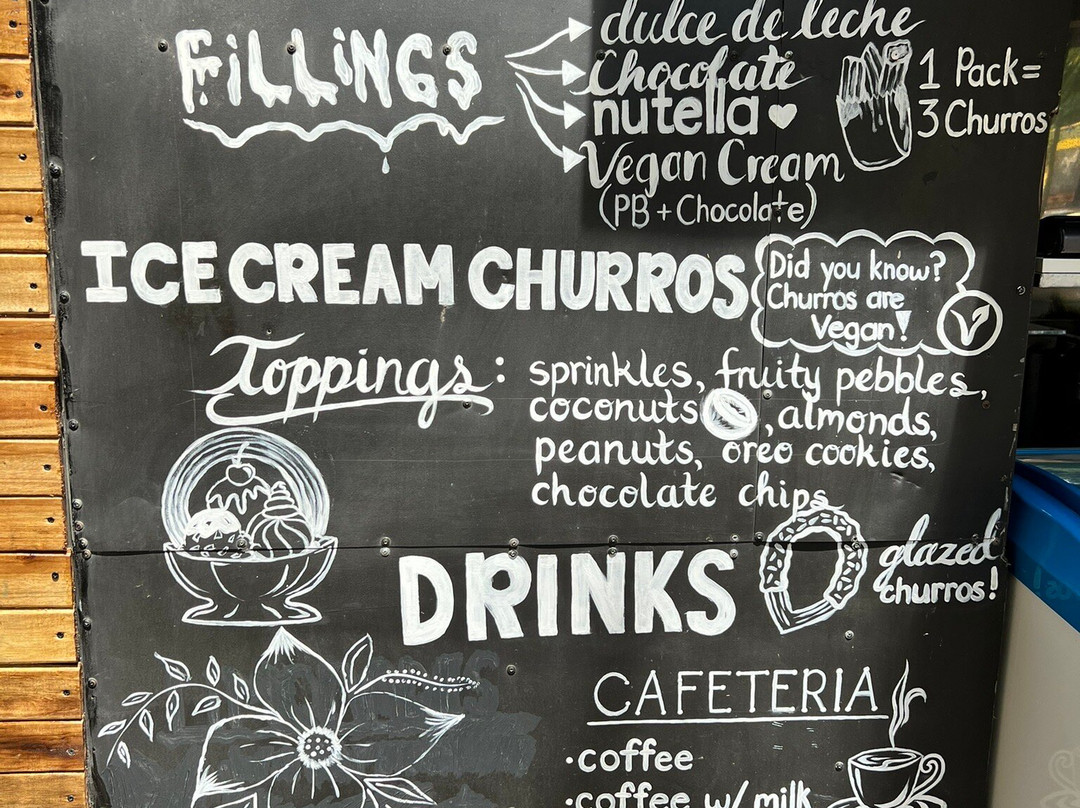 FiLLiNGS
dulce de leche
Chocolate
nutella
Vegan Cream
(PB + Chocolate)
1 Pack=
3 Churros
ICE CREAM CHURROS
Did you know?
Churros are
Vegan!
V
Toppings:
sprinkles, fruity pebbles,
coconuts, almonds,
peanuts, oreo cookies,
chocolate chips
glazed
churros!
DRINKS
CAFETERIA
·coffee
·coffee w/ milk